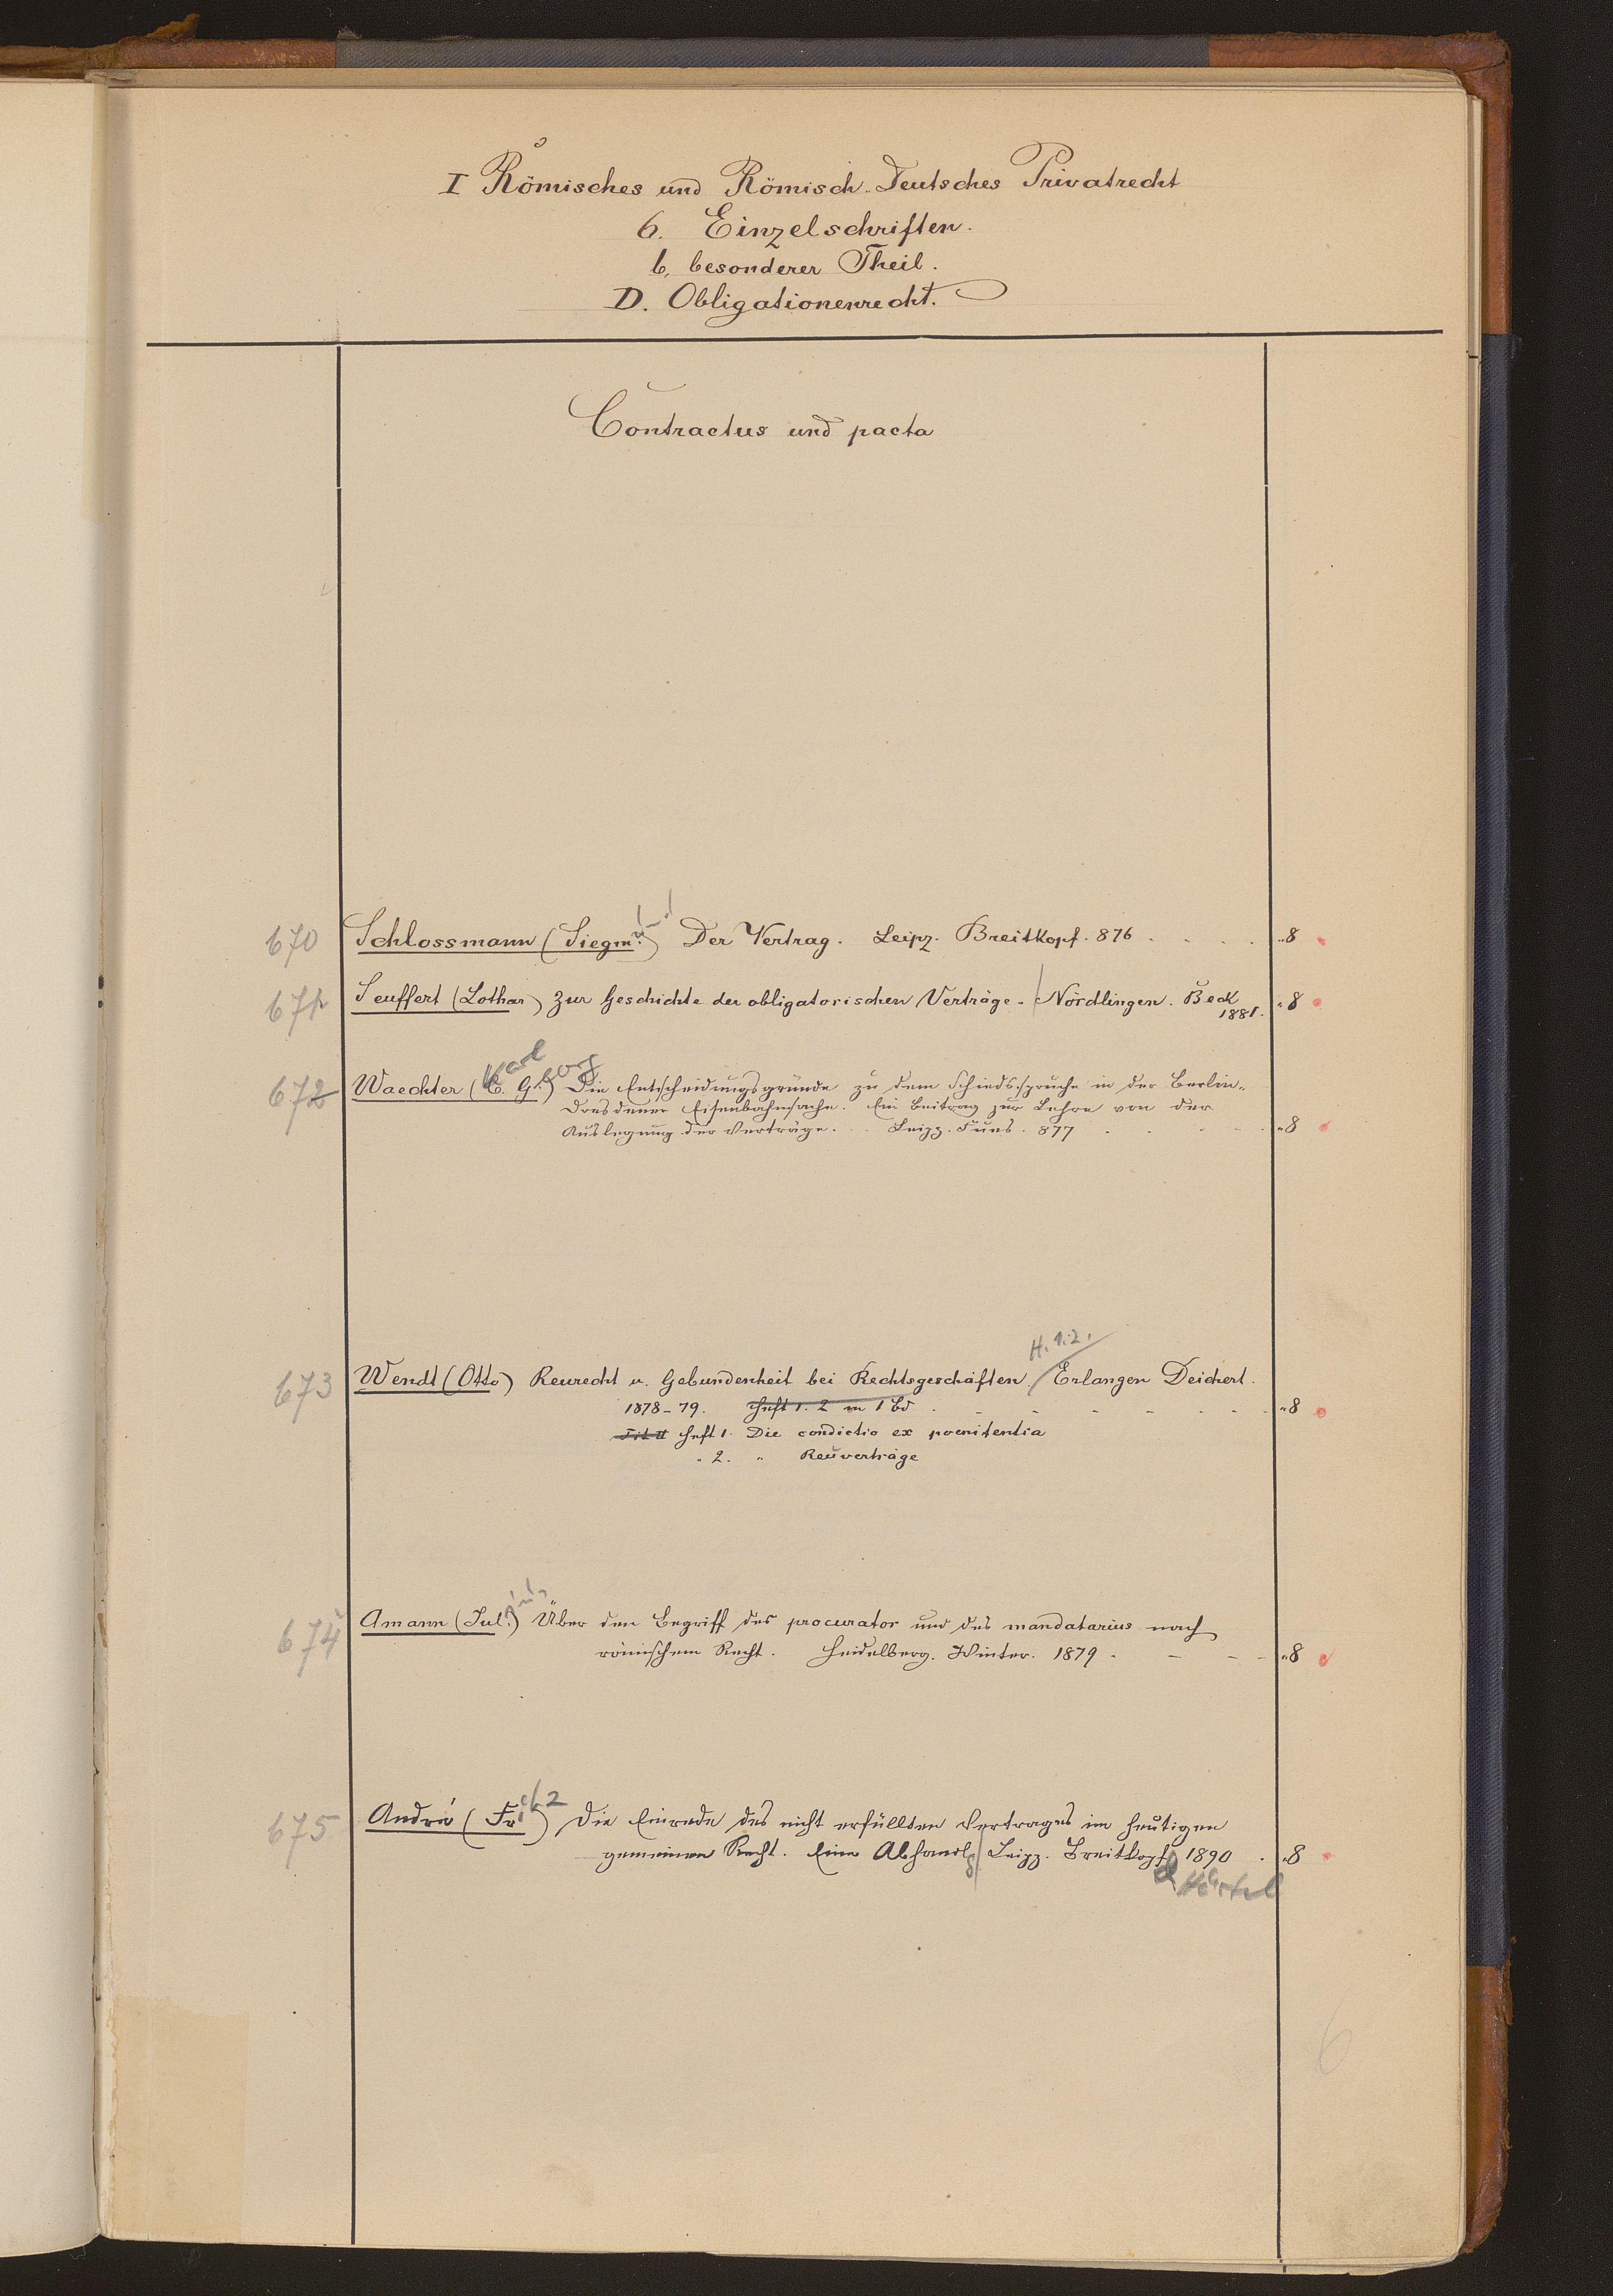 I Römisches und Römisch-Deutsches Privatrecht
6. Einzelschriften.
b, besonderer Theil.
D. Obligationenrecht.
Contractus und pacta
670 Schlossmann (Siegm.) Der Vertrag. Leipz. Breitkopf. 876 . . . . "8
671 Seuffert (Lothar) Zur Geschichte der obligatorischen Verträge. Nördlingen. Beck "8
1881.
Karl Georg
672 Waechter (C. G.) Die Entscheidungsgründe zu dem Schiedsspruche in der Berlin-
Dresdener Eisenbahnsache. Ein Beitrag zur Lehre von der
Auslegung der Verträge. Leipz. Fues. 877 . . . . "8
H. 1.2.
673 Wendt (Otto) Reurecht u. Gebundenheit bei Rechtsgeschäften Erlangen Deichert.
1878-79. Heft 1. 2 in 1 Bd . . . . "8
Heft 1. Die condictio ex poenitentia
" 2. " Reuverträge
674 Amann (Jul.) Über den Begriff des procurator und des mandatarius nach
römischem Recht. Heidelberg. Winter. 1879 . - - - "8
675 André (Fr) Die Einrede des nicht erfüllten Vertrages im heutigen
gemeinen Recht. Eine Abhandlg. Leipz. Breitkopf 1890 . "8
& Härtel
6